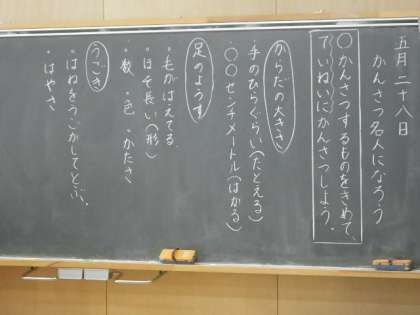 五月二十八日
かんさつ名人になろう
○かんさつするものをきめて、
ていねいにかんさつしよう。
からだの大きさ
・手のひらぐらい(たとえる)
・○○センチメートル(はかる)
足のようす
・毛がはえてる
・ほそ長い(形)
・数 ・色 ・かたさ
うごき
・はねをうごかしてとぶ。
・はやさ